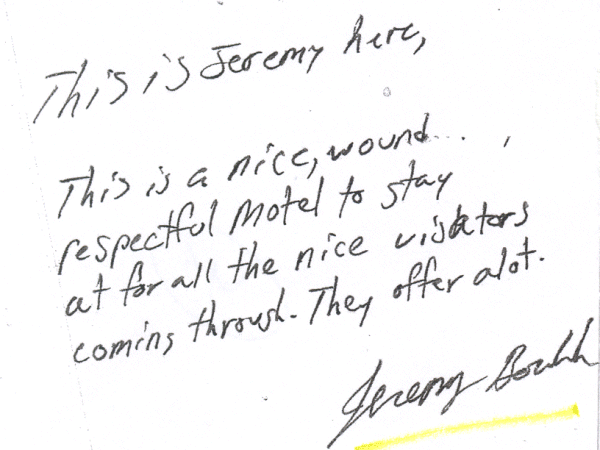 This is Jeremy here,
This is a nice, wound...,
respectful Motel to stay
at for all the nice visators
coming through. They offer alot.
Jeremy